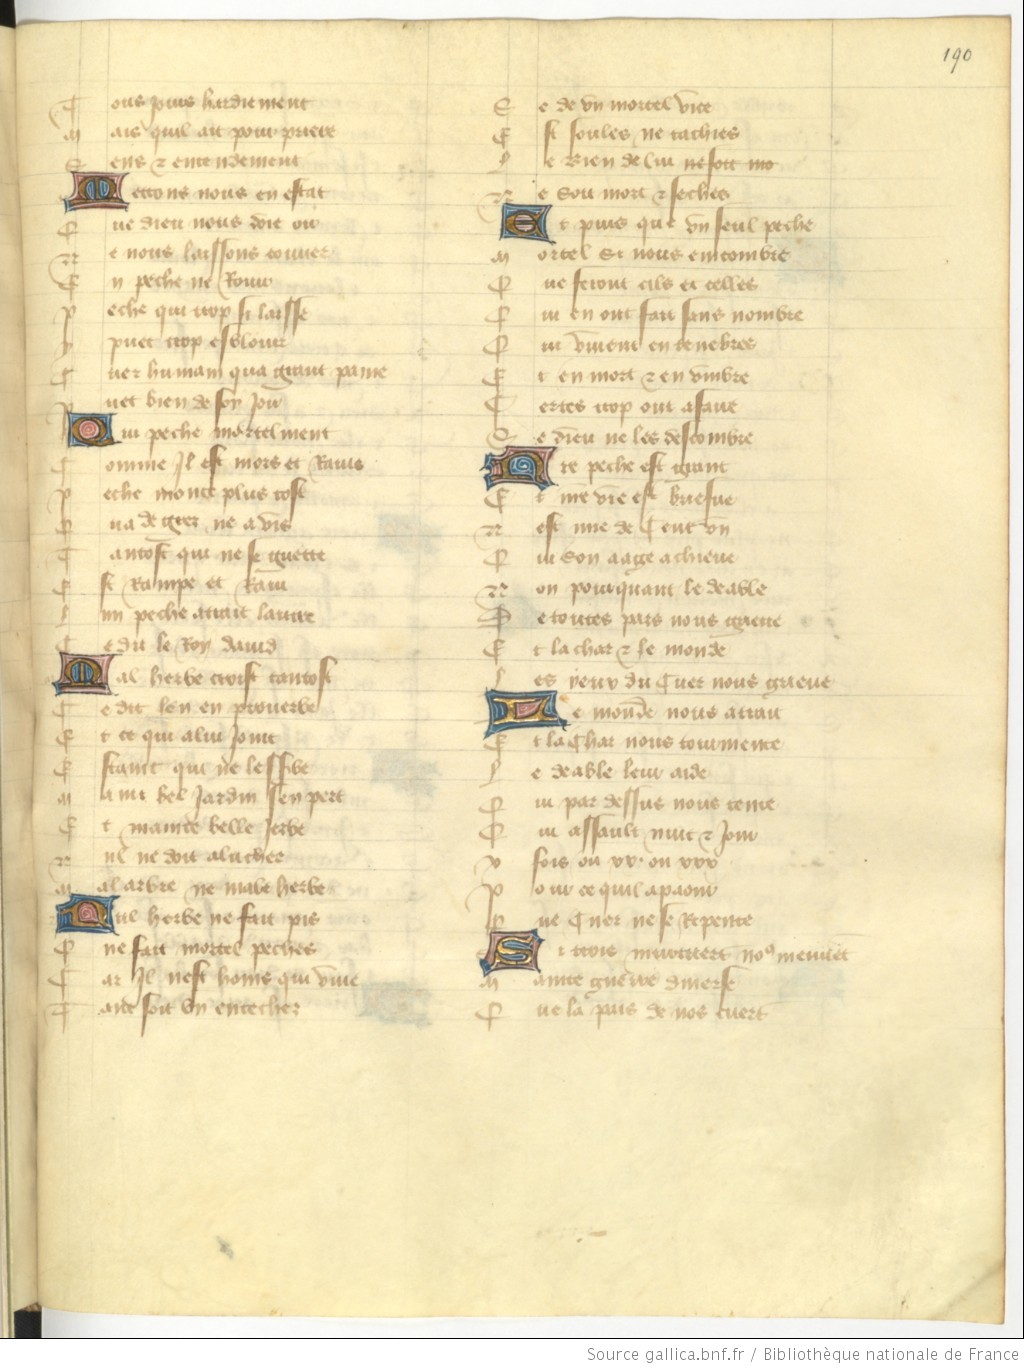 190
Tous jours hardiement
Mais quil ait pour priere
Sens ⁊ entendement
Mettons nous en estat
Que dieu nous doie oir
Ne nous laissons couver
En peche ne Rouir
Peche qui trop si laisse
Puet trop esblouir
Cuer humain qua grant paine
Puet bien de soy Jouir
Qui peche mortelment
Comme Il est mors et Ravis
Peche monte plus tost
Qua de grez ne a vis
Tantost qui ne se guette
Est Rampe et Ravi
Un peche attrait lautre
Ce dit le Roy david
Mal herbe croist tantost
Ce dit len en proverbe
Et ce qui a lui Joint
Estaint qui ne lessive
Maint bel Jardin sen pert
Et mainte belle Jerbe
Nul ne doit aluchier
Mal arbre ne male herbe
Nul herbe ne fait pis
Que fait mortel peches
Car Il nest homs qui vive
Tant soit Un entecher
Se de vn mortel vice
Est soules ne tachies
Le Bien de lui ne soit mo
Ne Sou mort ⁊ seches
Et puis que vn seul peche
Mortel Si nous encombre
Que feront cils et celles
Qui en ont fait sans nombre
Qui vivent en tenebres
Et en mort ⁊ en vmbre
Certes trop ont a faire
Se dieu ne les descombre
Nre peche est grant
Et nre vie est briefve
Nest mie de Cent vn
Qui Son aage achieve
Non pourquant le deable
De toutes pars nous grieve
Et la char ⁊ le monde
Les yeux du Cuer nous grieve
Le monde nous attrait
Et la Char nous tourmente
Le deable leur aide
Qui par dessus nous tente
Qui assault nuit ⁊ Jour
V fois ou xx. ou xxx
Pour ce quil a paour
Que Cuer ne se Repente
Si trois nous meinent
Mainte guerre diverse
Que la pais de nos cuers
Source gallica.bnf.fr / Bibliothèque nationale de France